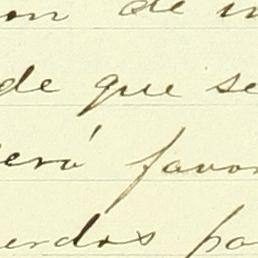 on de in
de que se
erá favor
uerdos pa